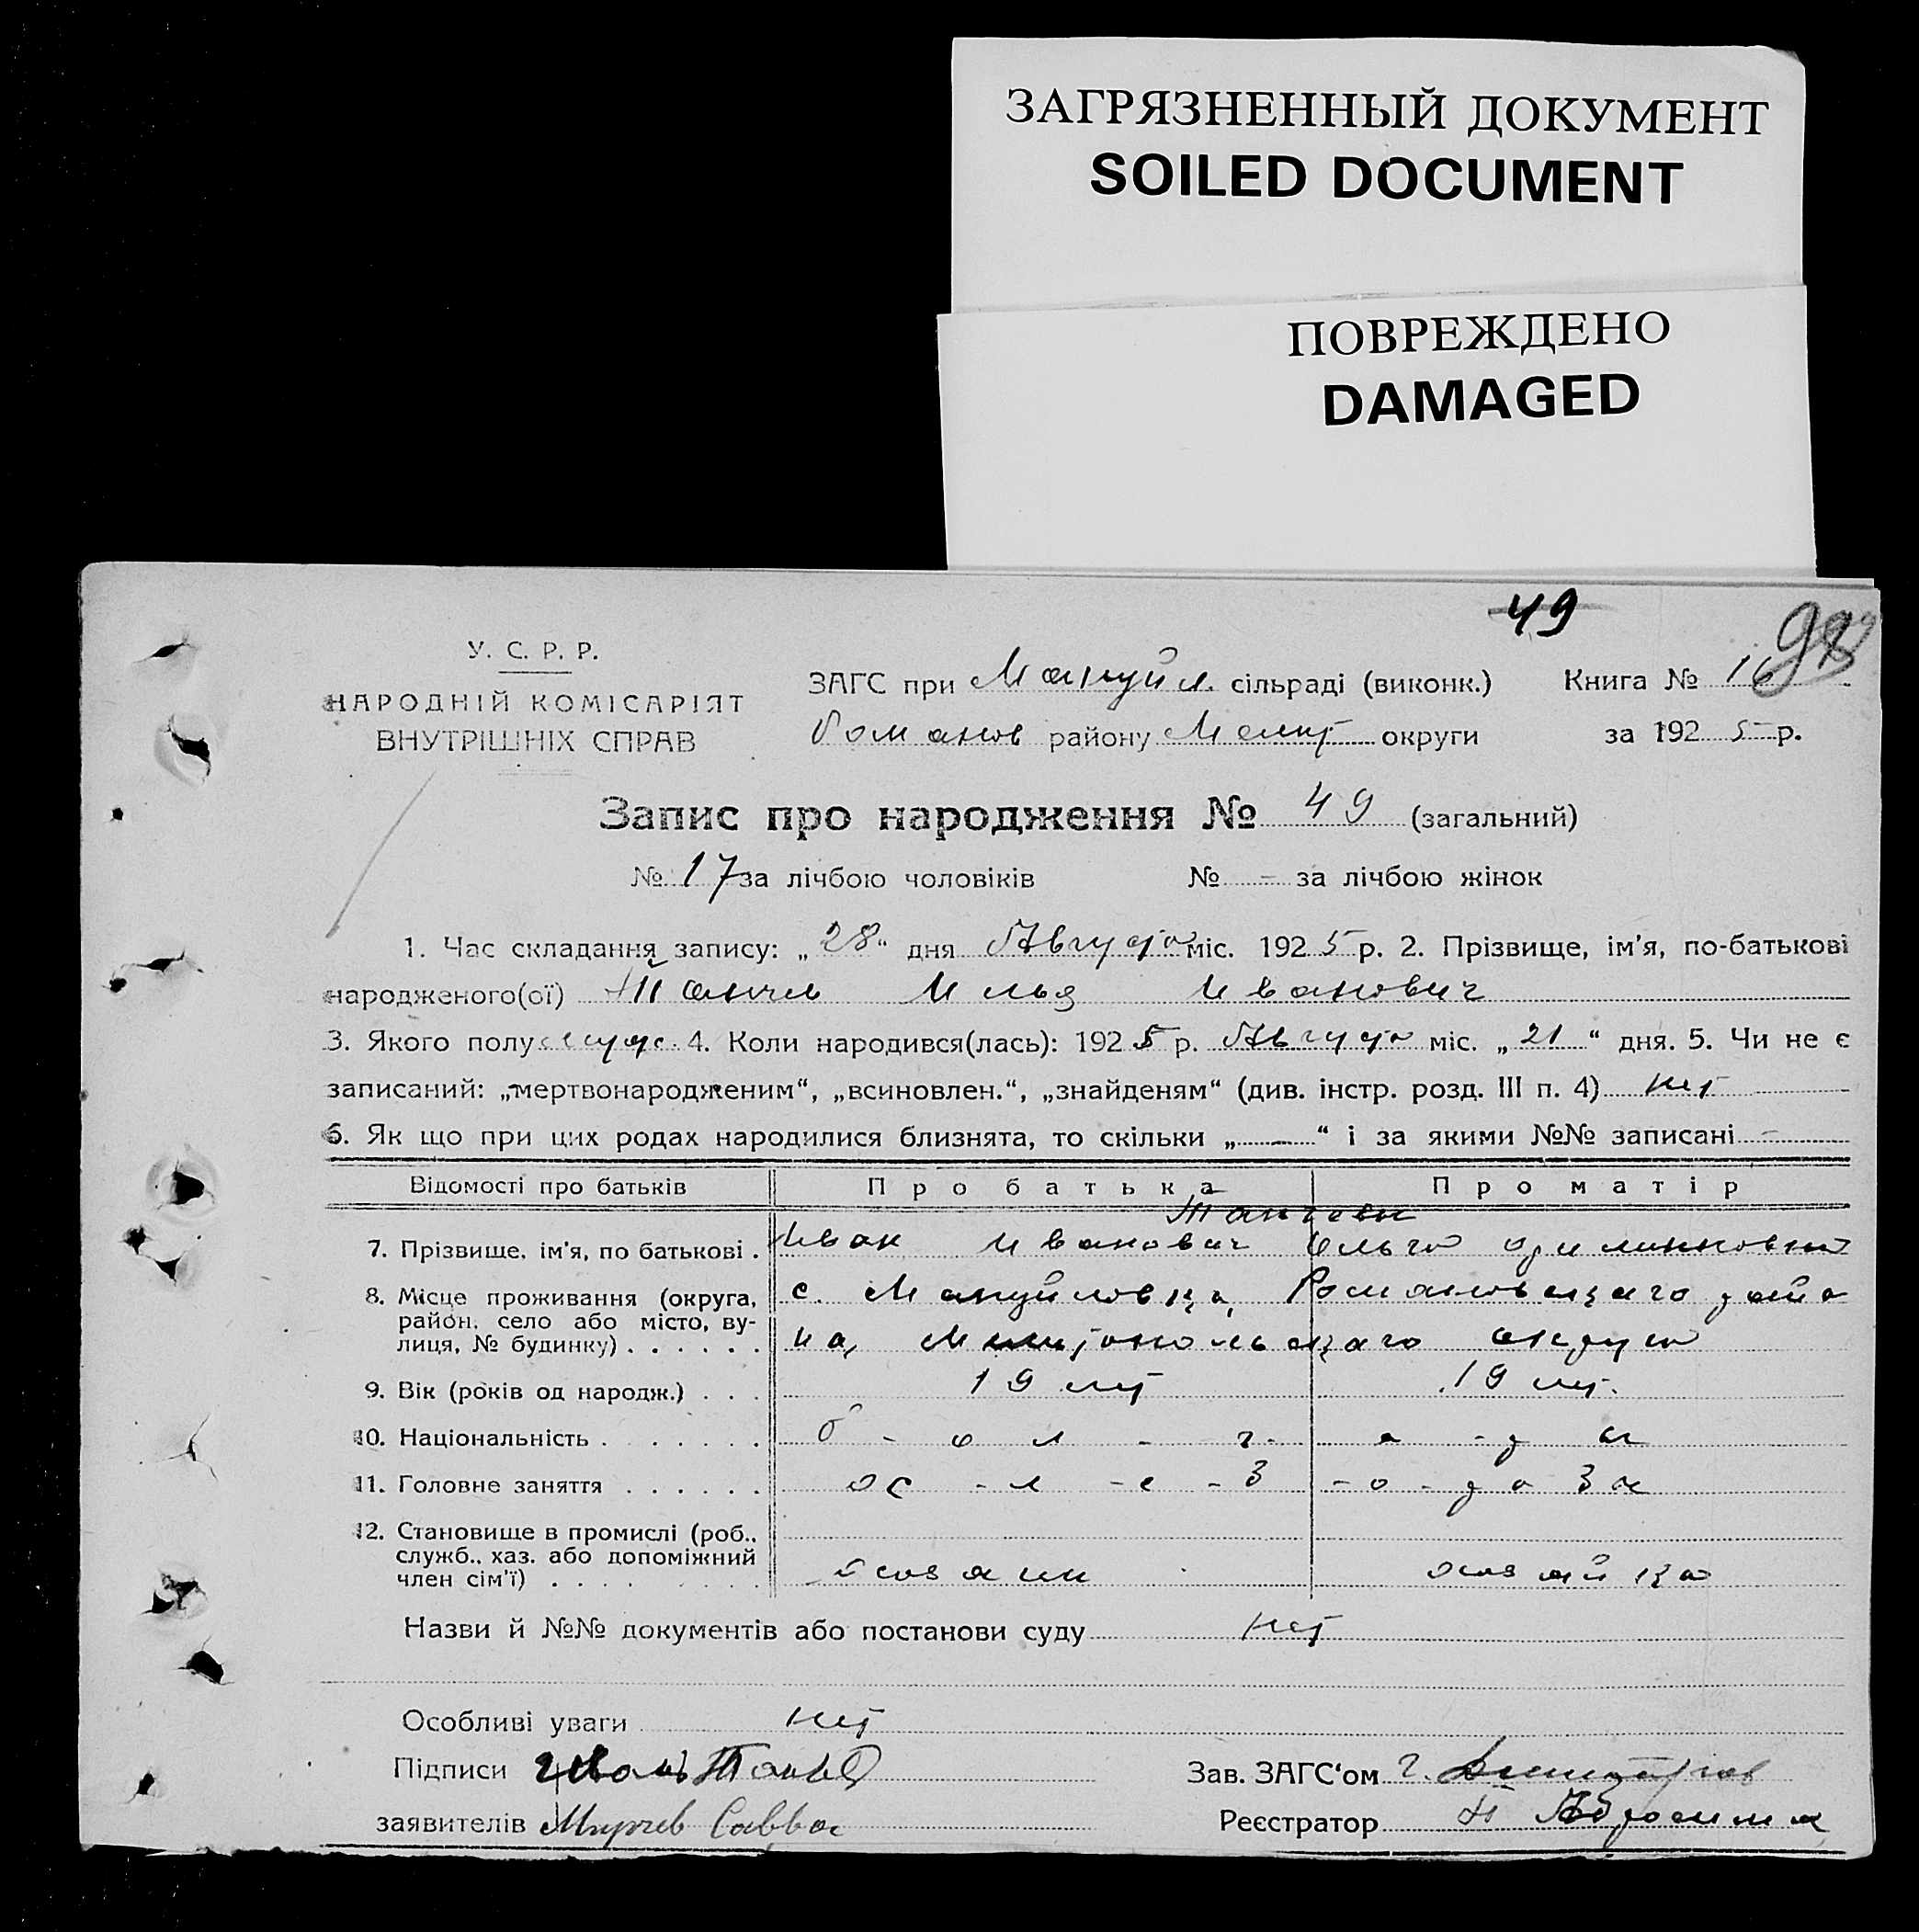 ЗАГРЯЗНЕННЫЙ ДОКУМЕНТ
SOILED DOCUMENT
ПОВРЕЖДЕНО
DAMAGED
49
У. С. Р. Р.
НАРОДНІЙ КОМІСАРІЯТ
ВНУТРІШНІХ СПРАВ
ЗАГС при Мануйл. сільраді (виконк.) Книга № 16
Романов району Мелит округи за 1925 р.
Запис про народження № 49 (загальний)
№ 17 за лічбою чоловіків № - за лічбою жінок
1. Час складання запису: „28“ дня Августа міс. 1925 р. 2. Прізвище, ім'я, по-батькові
народженого(ої) Танчев Илья Иванович
3. Якого полу муж. 4. Коли народився(лась): 1925 р. Августа міс. „21“ дня. 5. Чи не є
записаний: „мертвонародженим“, „всиновлен.“, „знайденям“ (див. інстр. розд. III п. 4) нет
6. Як що при цих родах народилися близнята, то скільки „-“ і за якими №№ записані -
Відомості про батьків Про батька Про матір
Танчевы
7. Прізвище, ім'я, по батькові . Иван Иванович Ольга
8. Місце проживання (округа, район, село або місто, вулиця, № будинку) . . . . . . с. Мануйловка, Романовскаго райо
на, Мелитопольскаго округа
9. Вік (років од народж.) . . . 19 лет 19 лет.
10. Національність . . . . . . . б - о л - г - а - р ы
11. Головне заняття . . . . . . х - л - е - б - о - р о б ы
12. Становище в промислі (роб., служб., хаз. або допоміжний член сім'ї) . . . . хозяин хозяйка
Назви й №№ документів або постанови суду нет
Особливі уваги нет
Підписи Иван Танчев Зав. ЗАГС'ом г. Димитров
заявителів Мирчев Савва Реєстратор